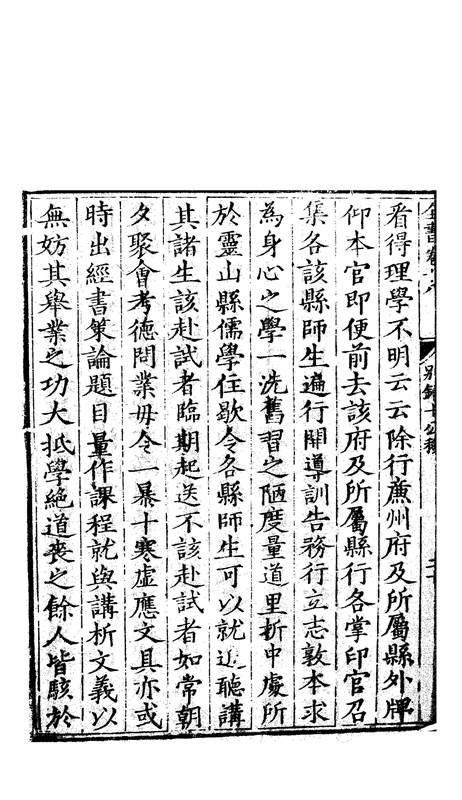 全書卷十八 別錄十公移
看得理學不明云云除行廉州府及所屬縣外牌
仰本官即便前去該府及所屬縣行各掌印官召
集各該縣師生遍行開導訓告務行立志敦本求
為身心之學一洗舊習之陋度量道里折中處所
於靈山縣儒學住歇令各縣師生可以就近聽講
其諸生該赴試者臨期起送不該赴試者如常朝
夕聚會考德問業毋令一暴十寒虛應文具亦或
時出經書策論題目量作課程就與講析文義以
無妨其舉業之功大抵學絕道喪之餘人皆駭於